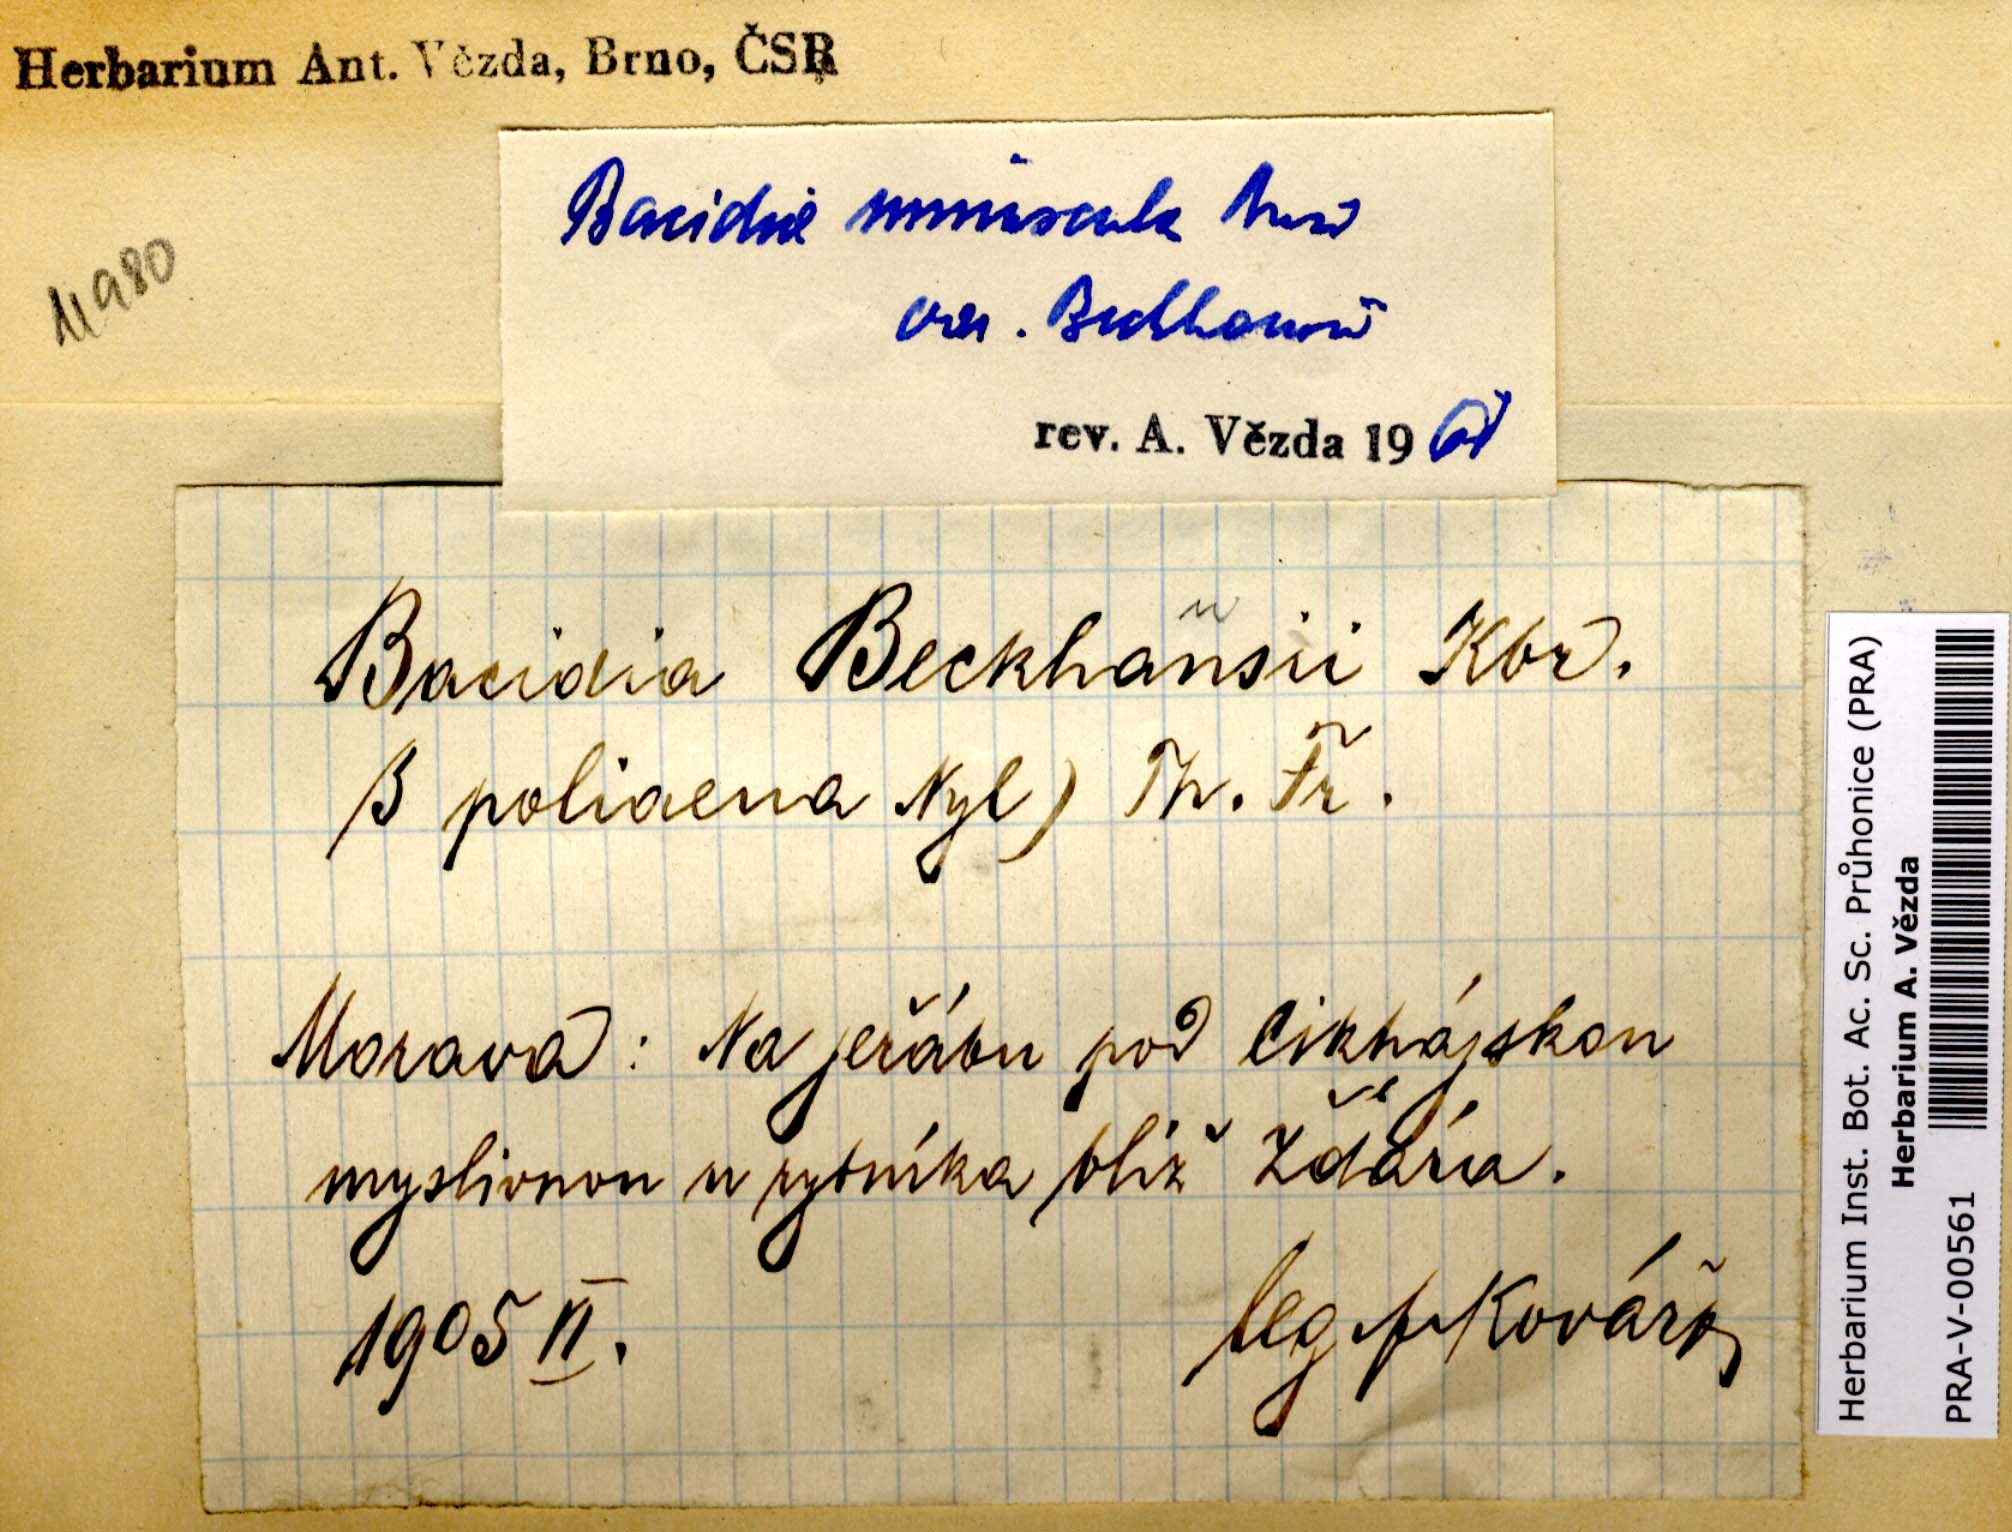 Herbarium Ant. Vězda, Brno, ČSR
11980
Bacidia
var.
rev. A. Vězda 19
Bacidia Beckhausii Kbr.
β poliaena Nyl) Th. Fr.
Morava: Na jeřábu pod Cikhájskou
myslivnou u rybníka blíž Žďára.
1905 VI.
leg. Kovář
Herbarium Inst. Bot. Ac. Sc. Průhonice (PRA)
Herbarium A. Vězda
PRA-V-00561